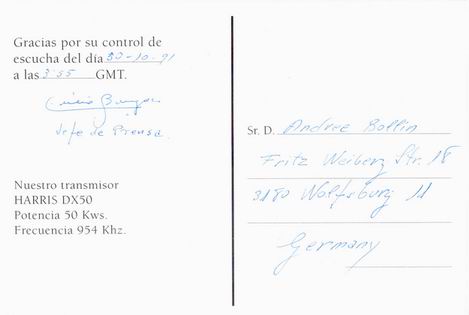 Gracias por su control de
escucha del día 30-10-91
a las 3'55 GMT.
Jefe de Prensa.
Nuestro transmisor
HARRIS DX50
Potencia 50 Kws.
Frecuencia 954 Khz.
Sr. D. Andree Bollin
Fritz Weiberg Str. 18
3180 Wolfsburg 11
Germany